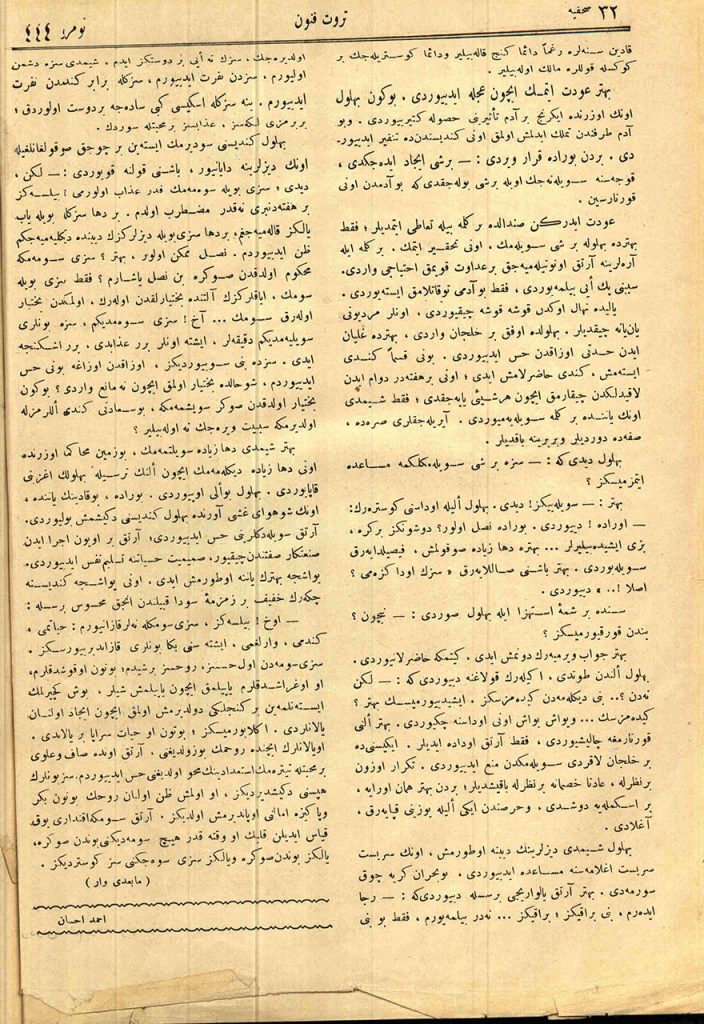 صحفه ٣٢
ثروت فنون
نومرو ٤٤٤
قادین سنه‌لره رغماً دائما کنج قاله‌بیلیر ودائما کوستریله‌جك بر
کوکسله قوللره مالك اوله‌بیلیر .
بهتر عودت ایتمك ایچون عجله ایدییوردی . بوکون بهلول
اونك اوزرنده ایکرنج بر آدم تأثیرینی حصوله کتیرییوردی . وبو
آدم طرفندن تملك ایدلمش اولمق اونی کندیسندن‌ده تنفیر ایدییور-
دی . بردن بوراده قرار ویردی : — برشی ایجاد ایده‌جکدی ،
قوجه‌سنه سویله‌نه‌جك اویله برشی بوله‌جقدی که بو آدمدن اونی
قورتارسین .
عودت ایدرکن صندالده بر کلمه بیله تعاطی ایتمدیلر ؛ فقط
بهترده بهلوله بر شی سویله‌مك ، اونی تحقیر ایتمك ، بر کلمه ایله
آره‌لرینه آرتق اونوتیله‌میه‌جق بر عداوت قویمق احتیاجی واردی.
سببنی پك ایی بیلمه‌یوردی ، فقط بو آدمی توقاتلامق ایسته‌یوردی .
یالیده نهال اوکدن قوشه قوشه چیقیوردی . اونلر مردیونی
یان‌یانه چیقدیلر . بهلولده اوفق بر خلجان واردی ، بهترده غلیان
ایدن حدتی اوزاقدن حس ایدییوردی . بونی قسماً کندی
ایسته‌مش ، کندی حاضرلامش ایدی ؛ اونی بر هفته‌در دوام ایدن
لاقیدلکدن چیقارمق ایچون هرشیئی یاپه‌جقدی ؛ فقط شیمدی
اونك یاننده بر کلمه سویله‌یه‌میوردی . آیریله‌جقلری صره‌ده ،
صفه‌ده دوردیلر وبربرینه باقدیلر .
بهلول دیدی که : — سزه بر شی سویله‌مکلکمه مساعده
ایتمزمیسکز ؟
بهتر : — سویله‌ییکز! دیدی . بهلول الیله اوداسنی کوستره‌رك:
— اوراده ! دییوردی . بوراده نصل اولور؟ دوشونکز برکره ،
بزی ایشیده‌بیلیرلر ... بهتره دها زیاده صوقولمش ، فیصیلدایه‌رق
سویله‌یوردی . بهتر باشنی صاللایه‌رق « سزك اوداکزه‌می ؟
اصلا !.. » دییوردی .
سسنده بر شمهٔ استهزا ایله بهلول صوردی : — نیچون ؟
بندن قورقیورمیسکز ؟
بهتر جواب ویرمیه‌رك دونمش ایدی ، کیتمکه حاضرلانیوردی .
بهلول الندن طوتدی ، اکیله‌رك قولاغنه دییوردی‌که : — لکن
نه‌دن ؟.. بنی دیکله‌مه‌دن کیده‌مزسکز . ایشیدییورمیسك بهتر ؟
کیده‌مزسك ... ویواش یواش اونی اوداسنه چکیوردی . بهتر النی
قورتارمغه چالیشیوردی ، فقط آرتق اوداده ایدیلر . ایکیسنی‌ده
بر خلجان لاقردی سویله‌مکدن منع ایدییوردی . تکرار اوزون
بر نظرله ، عادتا خصمانه بر نظرله باقیشدیلر؛ بردن بهتر همان اورایه ،
بر اسکمله‌یه دوشدی ، وحرصندن ایکی الیله یوزینی قپایه‌رق ،
آغلادی .
بهلول شیمدی دیزلرینك دیبنه اوطورمش ، اونك سربست
سربست اغلامه‌سنه مساعده ایدییوردی ، بوبحران کریه چوق
سورمه‌دی . بهتر آرتق یالواریجی برسسله دییوردی‌که : — رجا
ایده‌رم ، بنی براقیکز ؛ براقیکز ... نه‌در بیلمه‌یورم ، فقط بو بنی
اولدیره‌جك ، سزك نه ایی بر دوستکز ایدم . شیمدی سزه دشمن
اولیورم ، سزدن نفرت ایدییورم ، سزکله برابر کندمدن نفرت
ایدییورم . ینه سزکله اسکیسی کبی ساده‌جه بردوست اولوردق ؛
بربرمزی لکه‌سز ، عذابسز بر محبتله سوردك .
بهلول کندیسنی سودیرمك ایسته‌ین بر چوجق صوقولغانلغیله
اونك دیزلرینه دایانیور ، باشنی قولنه قویوردی : — لکن ،
دیدی ؛ سزی بویله سومه‌مك قدر عذاب اولورمی ؟ بیلسه‌کز
بر هفته‌دنبری نه‌قدر مضطرب اولدم . بر دها سزکله بویله یاپ
یالکز قاله‌میه‌جغم، بر دها سزی بویله دیزلرکزك دیبنده دیکلیه‌میه‌جکم
ظن ایدییوردم . نصل ممکن اولور ، بهتر ؟ سزی سومه‌مکه
محکوم اولدقدن صوکره بن نصل یاشارم ؟ فقط سزی بویله
سومك ، ایاقلرکزك آلتنده بختیارلقدن اوله‌رك ، اولمکدن بختیار
اوله‌رق سومك ... آخ ! سزی سوه‌مدیکم ، سزه بونلری
سویلیه‌مدیکم دقیقه‌لر ، ایشته اونلر برر عذابدی ، برر اشکنجه
ایدی . سزده بنی سوییوردیکز ، اوزاقدن اوزاغه بونی حس
ایدییوردم ، شو حالده بختیار اولمق ایچون نه مانع واردی ؟ بوکون
بختیار اولدقدن صوکر سویشمه‌مکه ، بوسعادتی کندی اللرمزله
اولدیرمکه سببیت ویره‌جك نه اوله‌بیلیر ؟
بهتر شیمدی دها زیاده سویلتمه‌مك ، بوزمین محاکه اوزرنده
اونی دها زیاده دیکله‌مه‌مك ایچون النك ترسیله بهلولك اغزینی
قاپایوردی . بهلول بوالی اوپییوردی . بوراده ، بوقادینك یاننده ،
اونك شوهوای غشی آورنده بهلول کندیسنی دکیشمش بولیوردی.
آرتق سویله‌دکلرینی حس ایدییوردی؛ آرتق بر اویون اجرا ایدن
صنعتکار صفتندن چیقیور، صمیمیت حسیاتنه تسلیم نفس ایدییوردی.
یواشجه بهترك یاننه اوطورمش ایدی . اونی یواشجه کندیسنه
چکه‌رك خفیف بر زمزمهٔ سودا قبیلندن انجق محسوس برسسله :
— اوخ ! بیلسه‌کز ، سزی سومکله نه‌لر قازانیورم : حیاتمی ،
کندمی ، وارلغمی . ایشته سنی بکا بونلری قازاندیرییورسکز .
سزی سومه‌دن اول حسسز، روحسز برشیدم؛ بوتون اوقوشدقلرم،
او اوغراشدقلرم یاپیلمق ایچون یاپیلمش شیلر ، بوش کچیرلمك
ایسته‌نلمه‌ین بر کنجلکی دولدیرمش اولمق ایچون ایجاد اولنان
یالانلردی . اکلایورمیسکز ؛ بوتون او حیات سراپا بر یالاندی .
اویالانلرك ایچنده روحك بوزولدیغنی ، آرتق اونده صاف وعلوی
بر محبتله تیتره‌مك استعدادینك محو اولدیغنی حس ایدییوردم. سز بونلرك
هپسنی دکیشدیردیکز ، او اولمش ظن اولنان روحك بوتون بکر
وپاکیزه امانی اویاندیرمش اولدیکز . آرتق سومکه اقتداری یوق
قیاس ایدیلن قلبك او وقته قدر هیچ سومه‌دیکنی بوندن صوکره ،
یالکز بوندن صوکره ویالکز سزی سوه‌جکنی سز کوستردیکز .
( مابعدی وار )
احمد احسان